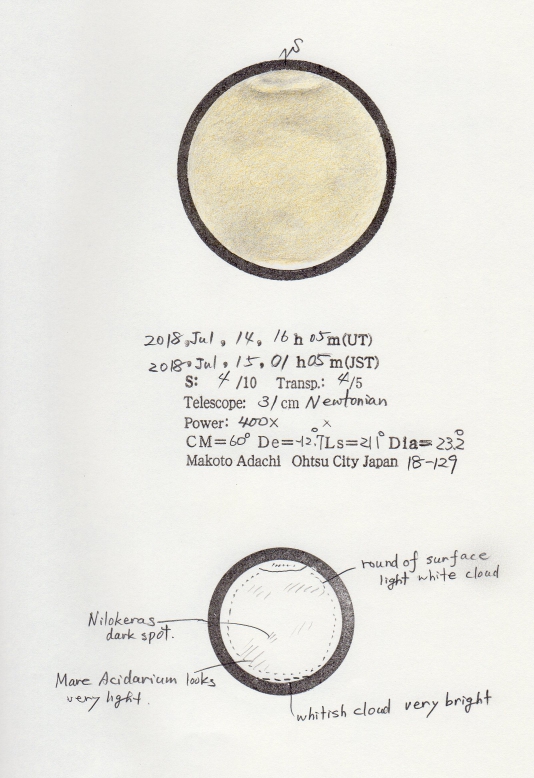 S
2018, Jul, 14, 16 h 05 m (UT)
2018, Jul, 15, 01 h 05 m (JST)
S: 4 /10 Transp.: 4/5
Telescope: 31 cm Newtonian
Power: 400× ×
CM=60° De=-12.7° Ls=211° Dia=23.2
Makoto Adachi Ohtsu City Japan 18-129
round of surface
light white cloud
Nilokeras
dark spot.
Mare Acidarium looks
very light.
whitish cloud very bright